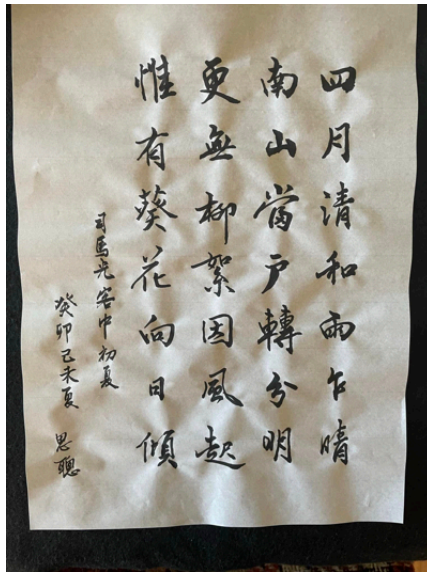 四月清和雨乍晴
南山當戶轉分明
更無柳絮因風起
惟有葵花向日傾
司馬光客中初夏
癸卯己未夏 思聰